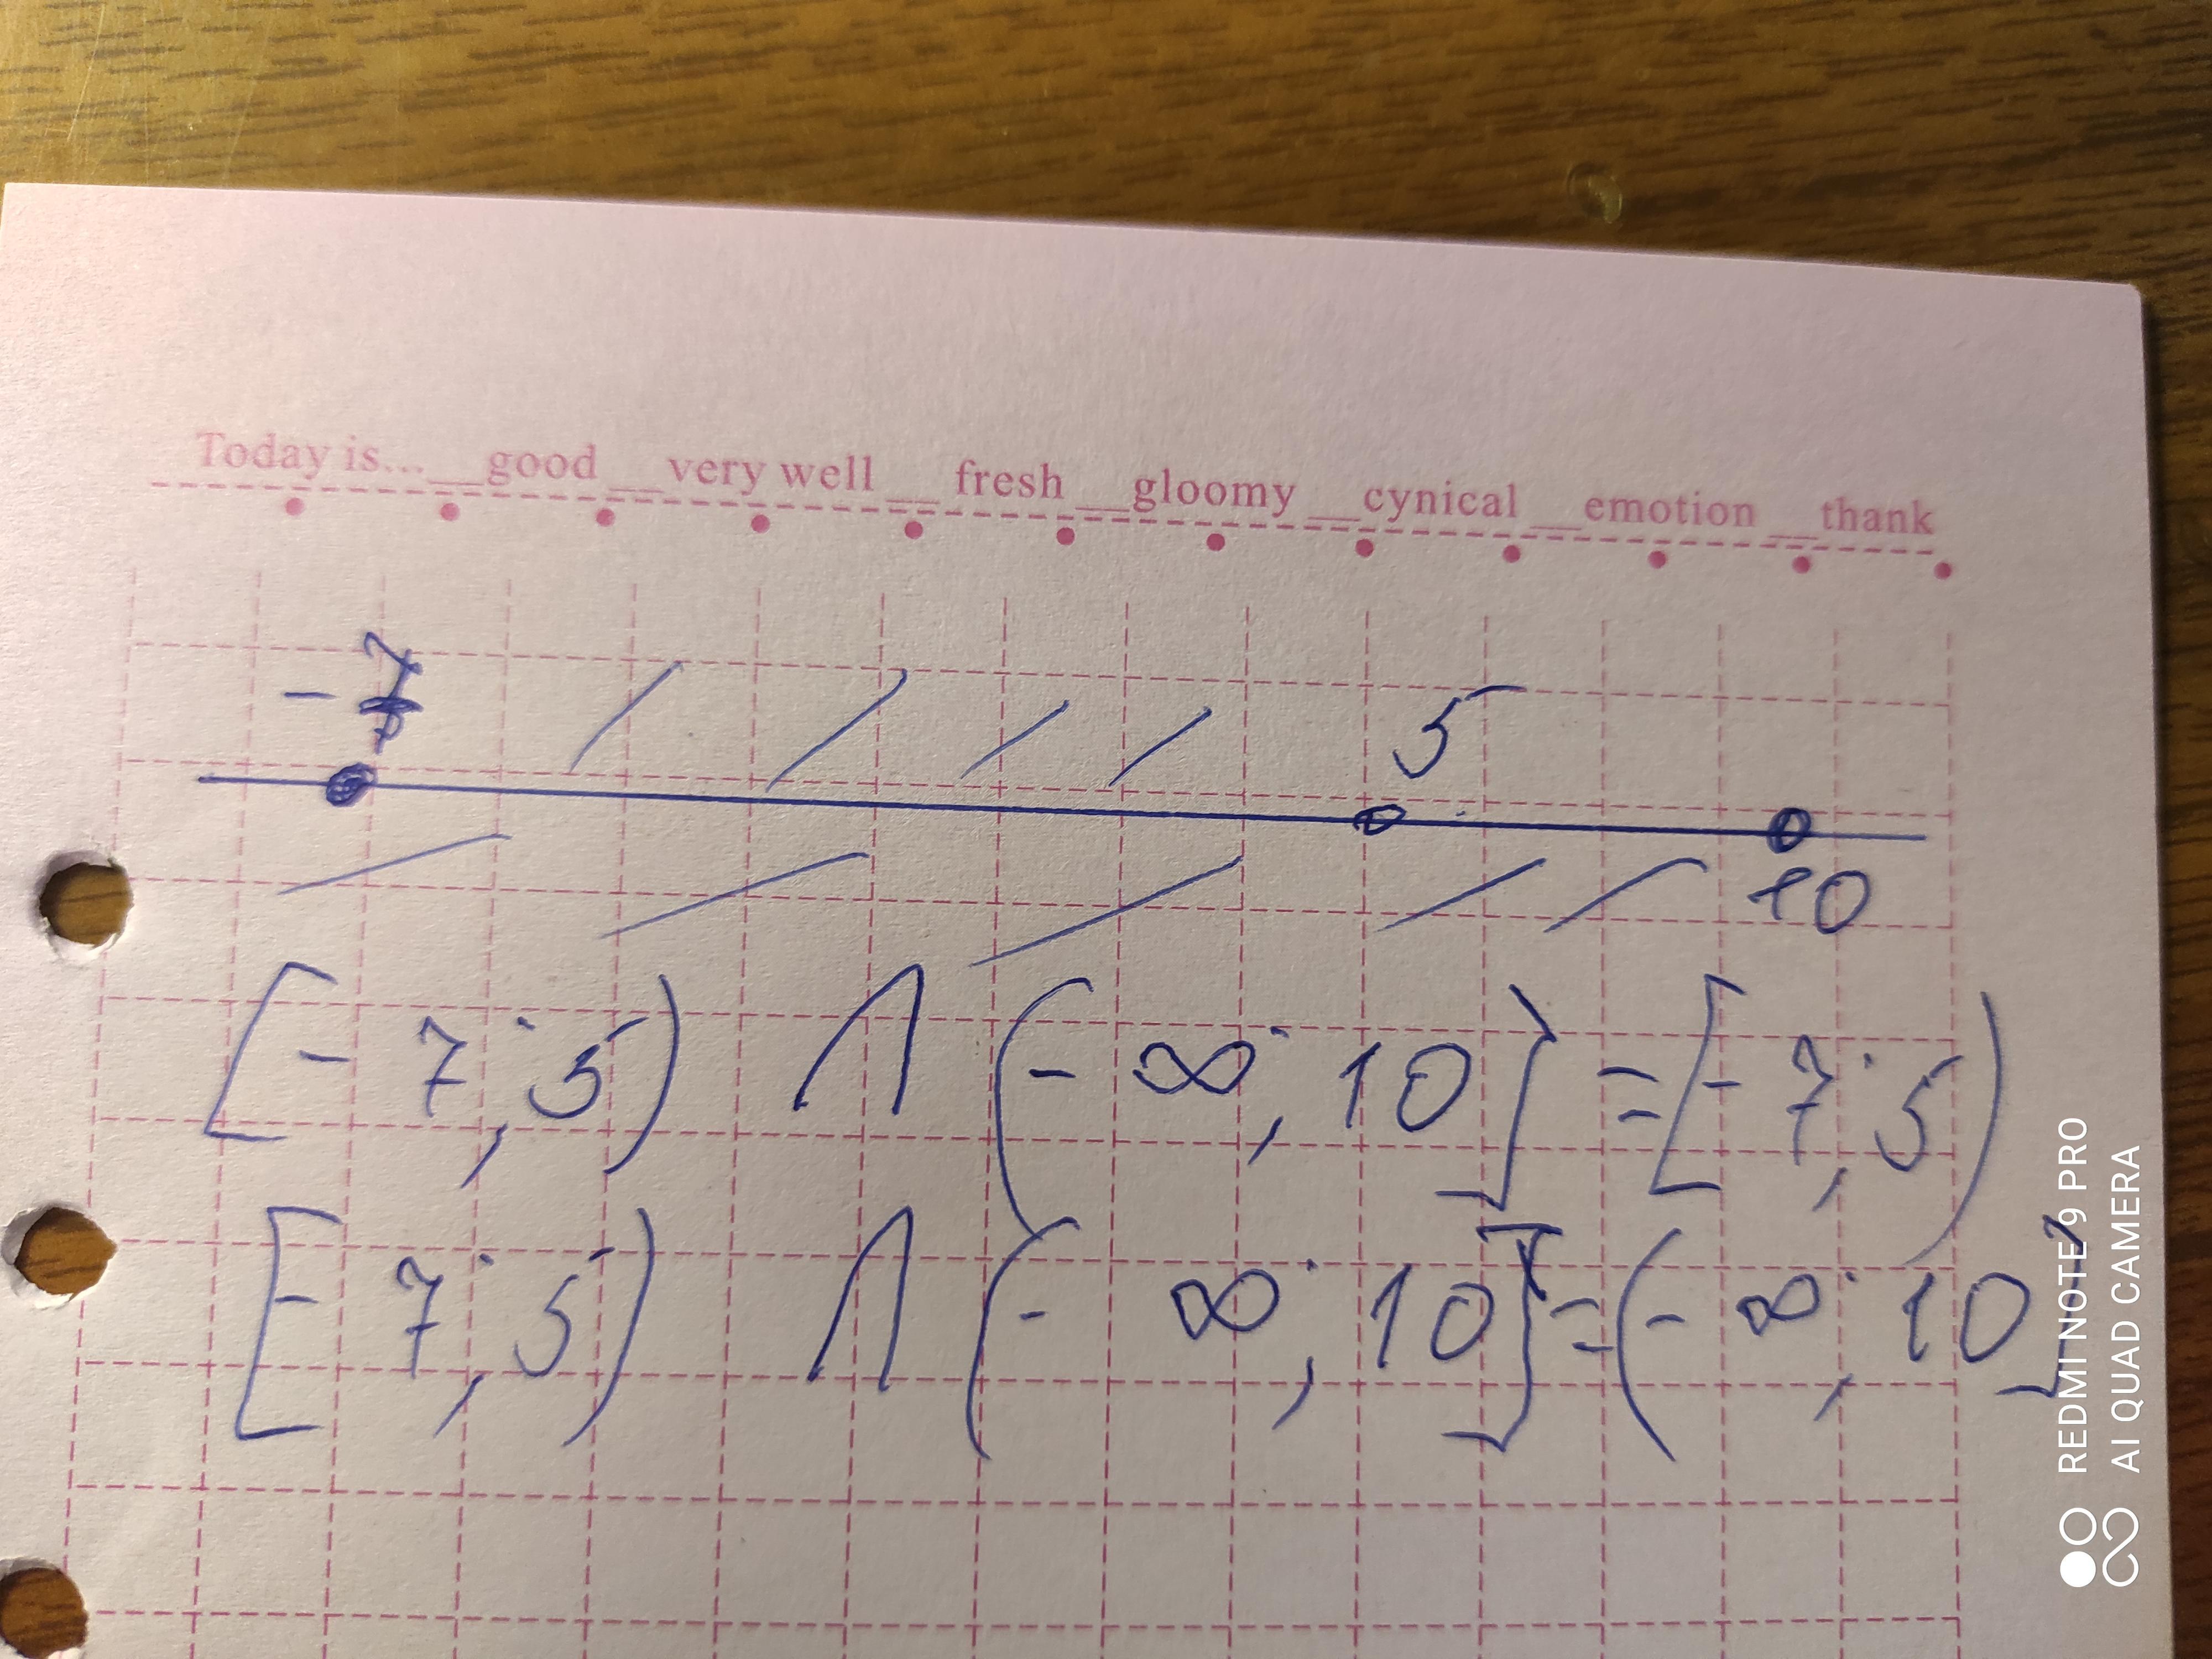 Today is... __good __very well __ fresh __gloomy __cynical __emotion __thank
- 7 5
10
[- 7; 5) ∩ (- ∞; 10] = [- 7; 5)
[- 7; 5) ∩ (- ∞; 10] = (- ∞; 10]
REDMI NOTE 9 PRO
AI QUAD CAMERA